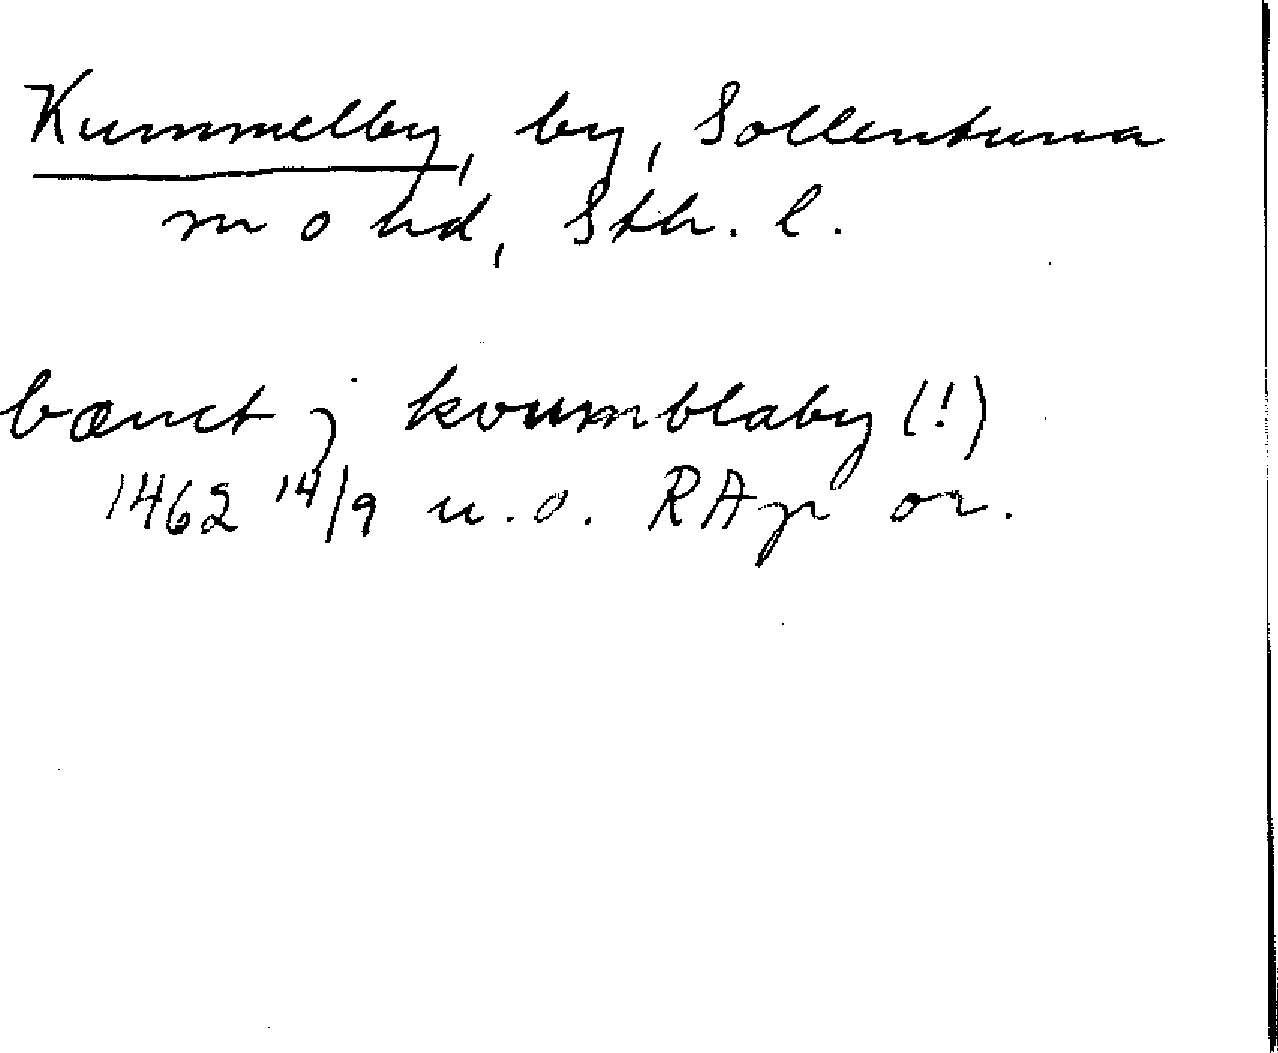 Kummelby, by, Sollentuna
sn o hd, Sth. l.
bænct j kvumblaby (!)
1462 14/9 u.o. RAp or.